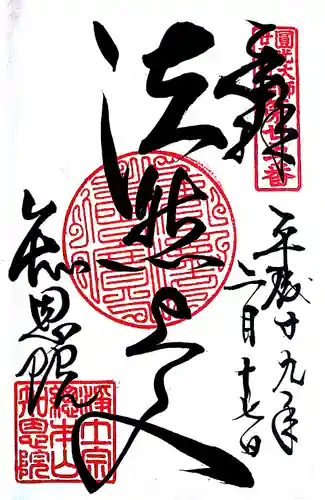 奉拝
圓光大師第廿五番
平成十九年
六月十七日
法然上人
知恩院
浄土宗
総本山
知恩院